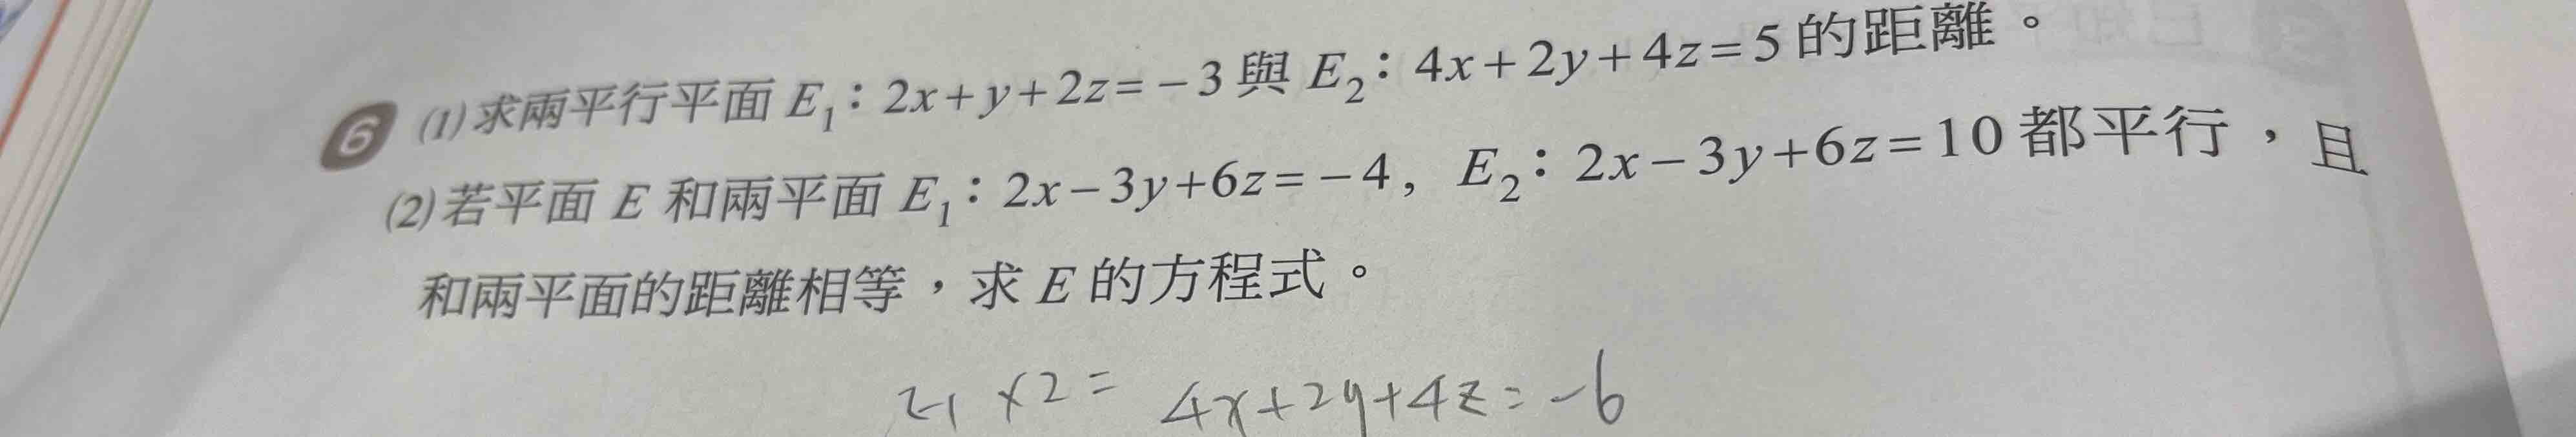 6 (1)求兩平行平面 E₁：2x+y+2z=-3 與 E₂：4x+2y+4z=5 的距離。
(2)若平面 E 和兩平面 E₁：2x-3y+6z=-4，E₂：2x-3y+6z=10 都平行，且
和兩平面的距離相等，求 E 的方程式。
×2= 4x+2y+4z=-6